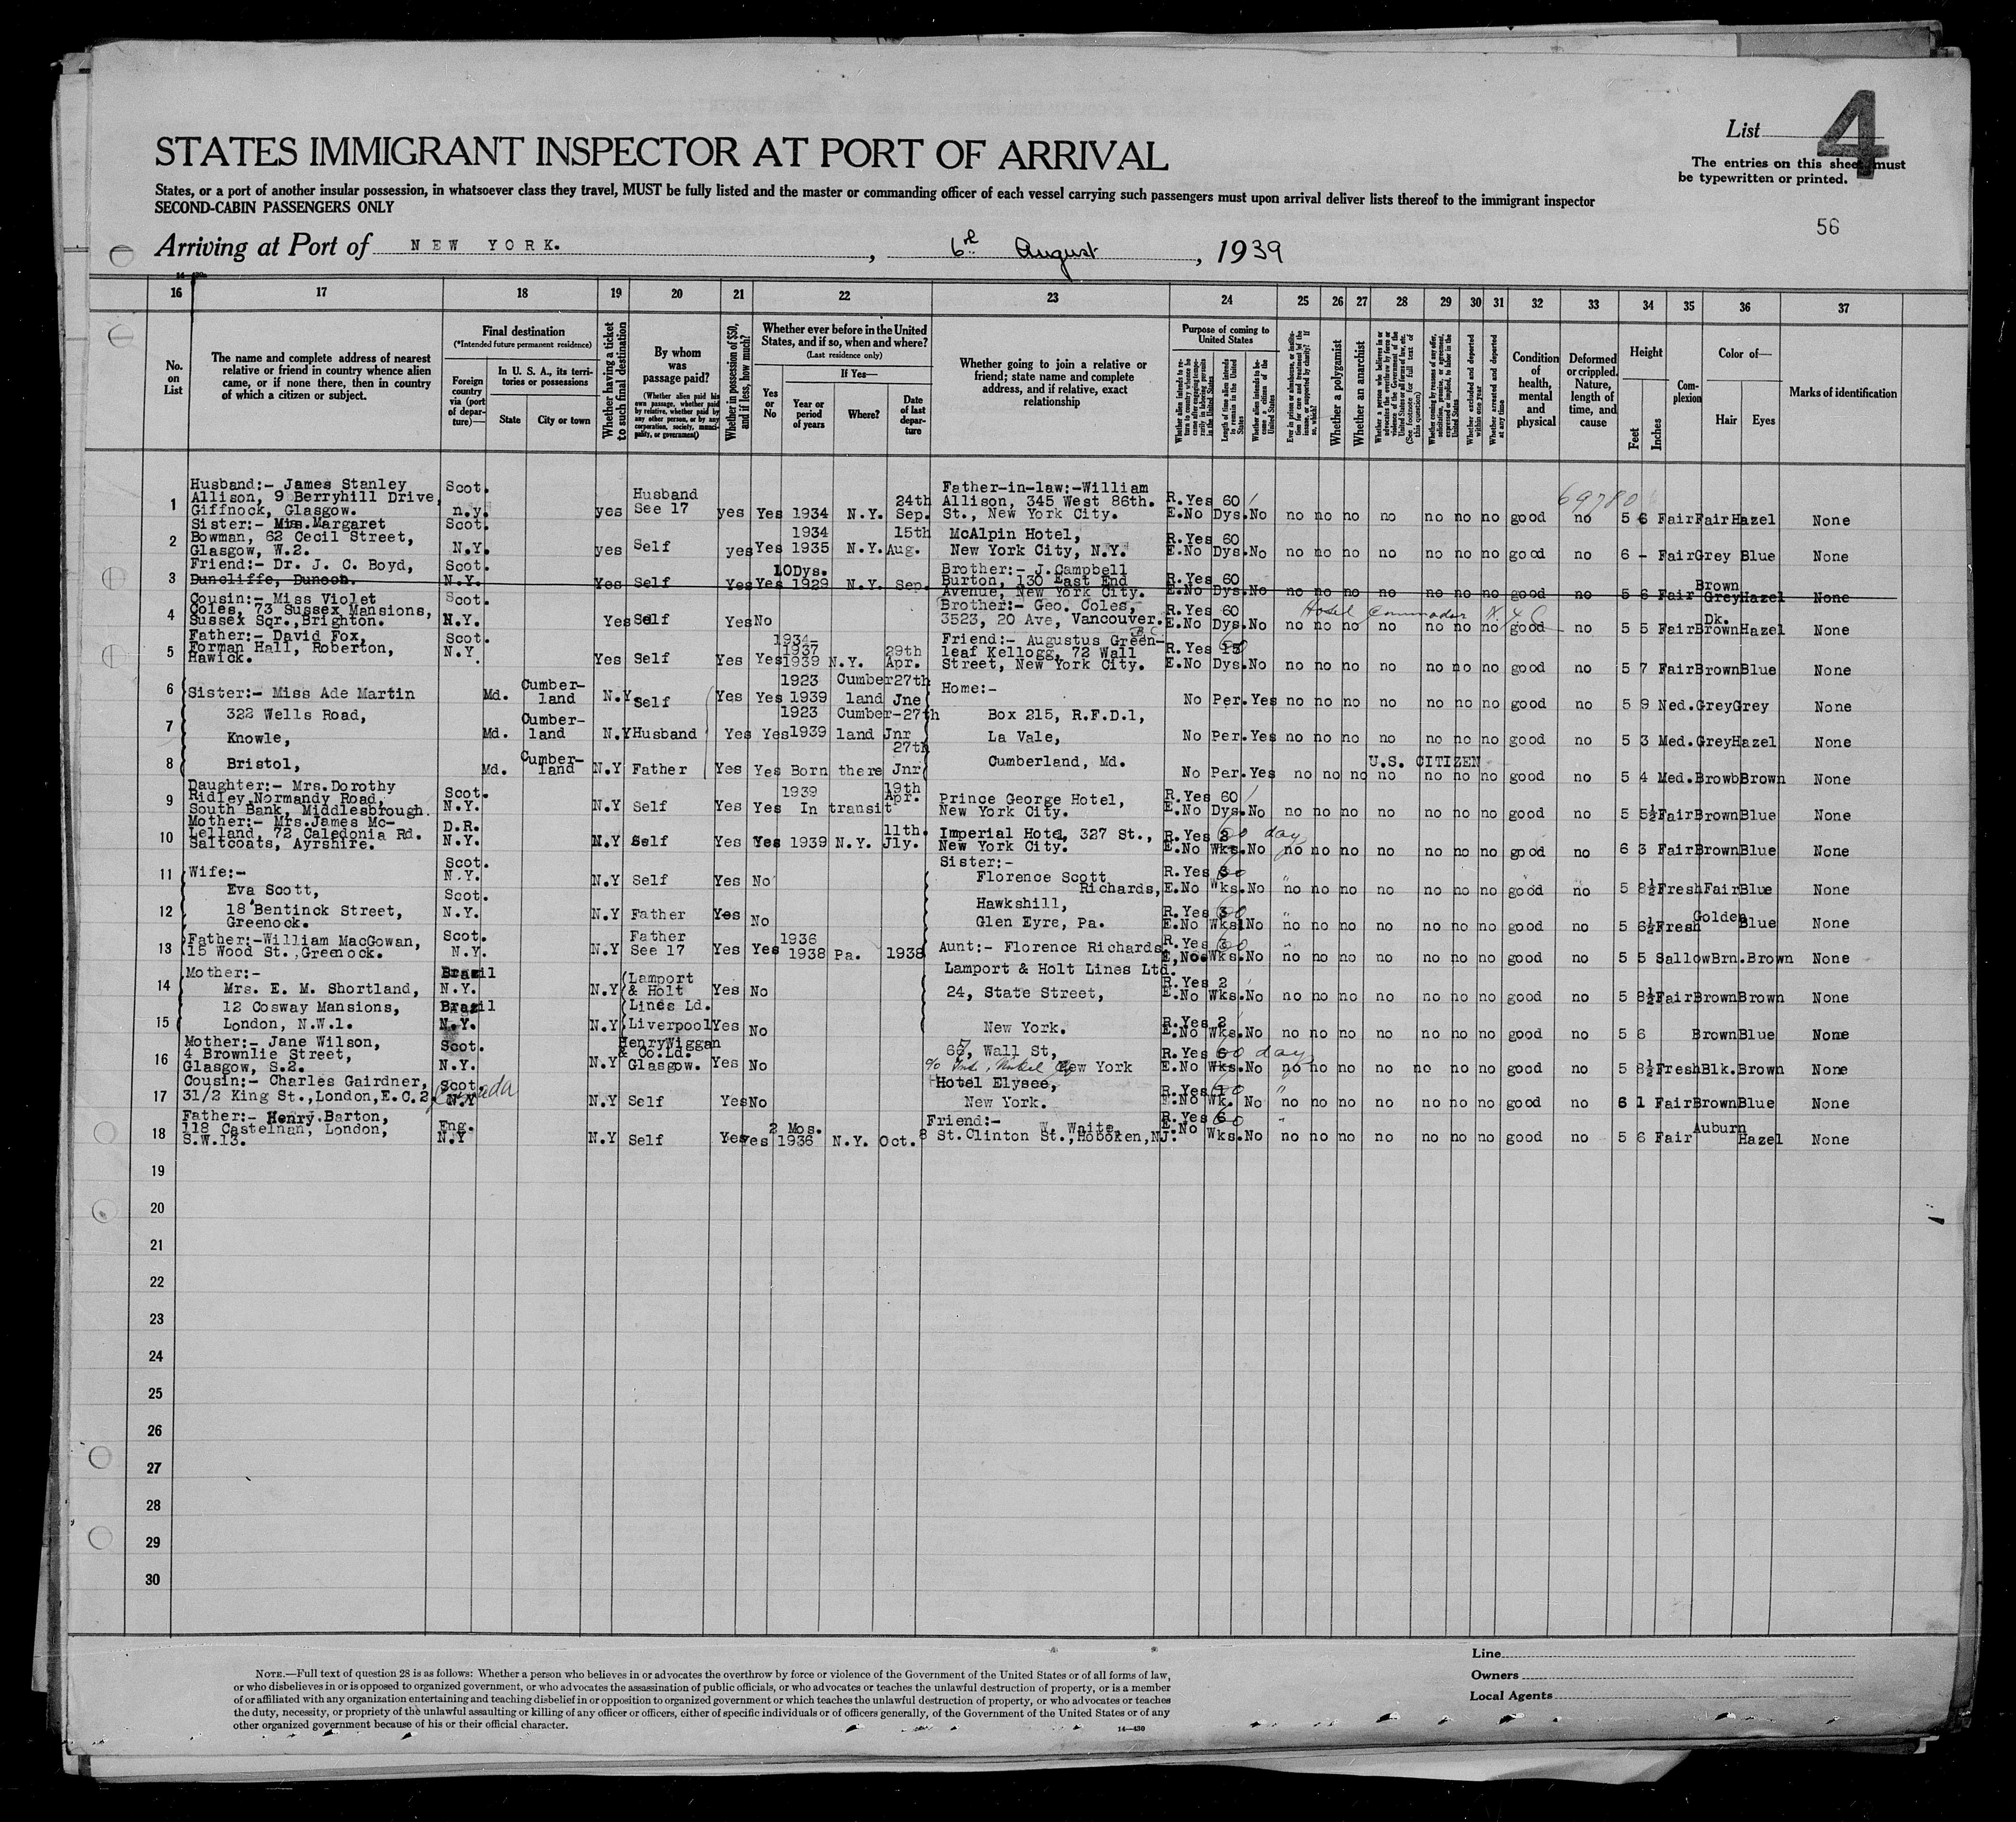 List 4
STATES IMMIGRANT INSPECTOR AT PORT OF ARRIVAL
The entries on this sheet must
be typewritten or printed.
States, or a port of another insular possession, in whatsoever class they travel, MUST be fully listed and the master or commanding officer of each vessel carrying such passengers must upon arrival deliver lists thereof to the immigrant inspector
SECOND-CABIN PASSENGERS ONLY
56
Arriving at Port of NEW YORK. , 6th August , 1939
16 17 18 19 20 21 22 23 24 25 26 27 28 29 30 31 32 33 34 35 36 37
No. on List
The name and complete address of nearest relative or friend in country whence alien came, or if none there, then in country of which a citizen or subject.
Final destination
(*Intended future permanent residence)
Foreign country via (port of departure)—
In U. S. A., its territories or possessions
State
City or town
Whether having a ticket to such final destination
By whom was passage paid?
(Whether alien paid his own passage, whether paid by relative, whether paid by any other person, or by any corporation, society, municipality, or government)
Whether in possession of $50, and if less, how much?
Whether ever before in the United States, and if so, when and where?
(Last residence only)
Yes or No
If Yes—
Year or period of years
Where?
Date of last departure
Whether going to join a relative or friend; state name and complete address, and if relative, exact relationship
Purpose of coming to United States
Length of time alien intends to remain in the United States
Whether alien intends to become a citizen of the United States
Whether a polygamist
Whether an anarchist
Whether excluded and deported within one year
Whether arrested and deported at any time
Condition of health, mental and physical
Deformed or crippled. Nature, length of time, and cause
Height
Feet
Inches
Complexion
Color of—
Hair
Eyes
Marks of identification
69780
1 Husband:- James Stanley Allison, 9 Berryhill Drive, Giffnock, Glasgow. Scot. n.y. yes Husband See 17 yes Yes 1934 N.Y. 24th Sep. Father-in-law:-William Allison, 345 West 86th. St., New York City. R.Yes E.No 60 Dys. No no no no no no no no good no 5 6 Fair Fair Hazel None
2 Sister:- Miss.Margaret Bowman, 62 Cecil Street, Glasgow, W.2. Scot. N.Y. yes Self yes Yes 1934 1935 N.Y. 15th Aug. McAlpin Hotel, New York City, N.Y. R.Yes E.No 60 Dys. No no no no no no no no good no 6 - Fair Grey Blue None
3 Friend:- Dr. J. C. Boyd, Duncliffe, Dunoon. Scot. N.Y. Yes Self Yes Yes 10Dys. 1929 N.Y. Sep. Brother:- J.Campbell Burton, 130 East End Avenue, New York City. R.Yes E.No 60 Dys. No no no no no no no no good no 5 6 Fair Brown Grey Hazel None
4 Cousin:- Miss Violet Coles, 73 Sussex Mansions, Sussex Sqr.,Brighton. Scot. N.Y. Yes Self Yes No Brother:- Geo. Coles, 3523, 20 Ave, Vancouver. B.C. R.Yes E.No 60 Dys. No Hotel Commodore N.Y.C. no no no no no no no good no 5 5 Fair Dk. Brown Hazel None
5 Father:- David Fox, Forman Hall, Roberton, Hawick. Scot. N.Y. Yes Self Yes Yes 1934- 1937 1939 N.Y. 29th Apr. Friend:- Augustus Greenleaf Kellogg, 72 Wall Street, New York City. R.Yes E.No 15 60 Dys. No no no no no no no no good no 5 7 Fair Brown Blue None
6 Sister:- Miss Ade Martin Md. Cumberland N.Y. Self Yes Yes 1923 1939 Cumberland 27th Jne Home:- No Per. Yes no no no no no no no good no 5 9 Ned. Grey Grey None
7 322 Wells Road, Knowle, Md. Cumberland N.Y Husband Yes Yes 1923 1939 Cumberland 27th Jnr Box 215, R.F.D.1, La Vale, No Per. Yes no no no no no no no good no 5 3 Med. Grey Hazel None
8 Bristol, Md. Cumberland N.Y Father Yes Yes Born there 27th Jnr Cumberland, Md. No Per. Yes U.S. CITIZEN no no no no no no no good no 5 4 Med. Browb Brown None
9 Daughter:- Mrs.Dorothy Ridley,Normandy Road, South Bank, Middlesbrough. Scot. N.Y. N.Y Self Yes Yes 1939 In transit 19th Apr. Prince George Hotel, New York City. R.Yes E.No 60 Dys. No no no no no no no no good no 5 5½ Fair Brown Blue None
10 Mother:- Mrs.James McLelland, 72 Caledonia Rd. Saltcoats, Ayrshire. D.R. N.Y. N.Y Self Yes Yes 1939 N.Y. 11th. Jly. Imperial Hotel, 327 St., New York City. R.Yes E.No 2 Wks. 60 days No no no no no no no no good no 6 3 Fair Brown Blue None
11 Wife:- Eva Scott, Scot. N.Y. N.Y Self Yes No Sister:- Florence Scott Richards, R.Yes E.No 3 Wks. 60 " No no no no no no no no good no 5 8½ Fresh Fair Blue None
12 18 Bentinck Street, Greenock. Scot. N.Y. N.Y Father Yes No Hawkshill, Glen Eyre, Pa. R.Yes E.No 3 Wks. 60 " No no no no no no no no good no 5 6½ Fresh Golden Blue None
13 Father:-William MacGowan, 15 Wood St.,Greenock. Scot. N.Y. N.Y Father See 17 Yes Yes 1936 1938 Pa. 1938 Aunt:- Florence Richards R.Yes E,No. 3 Wks. 60 " No no no no no no no no good no 5 5 Sallow Brn. Brown None
14 Mother:- Mrs. E. M. Shortland, Brazil N.Y. N.Y Lamport & Holt Yes No Lamport & Holt Lines Ltd. 24, State Street, R.Yes E.No 2 Wks. No no no no no no no no good no 5 8½ Fair Brown Brown None
15 12 Cosway Mansions, London, N.W.1. Brazil N.Y. N.Y Lines Ld. Liverpool Yes No New York. R.Yes E.No 2 Wks. No no no no no no no no good no 5 6 Brown Blue None
16 Mother:- Jane Wilson, 4 Brownlie Street, Glasgow, S.2. Scot. N.Y. N.Y Henry Wiggan & Co.Ld. Glasgow. Yes No 67, Wall St, c/o Int. Nickel Co New York R.Yes E.No 6 Wks. 60 days No no no no no no no no good no 5 8½ Fresh Blk. Brown None
17 Cousin:- Charles Gairdner, 31/2 King St.,London,E.C.2. Scot. N.Y Canada N.Y Self Yes No Hotel Elysee, New York. R.Yes E.No 1 Wk. 60 " No no no no no no no no good no 6 1 Fair Brown Blue None
18 Father:- Henry.Barton, 118 Castelnan, London, S.W.13. Eng. N.Y N.Y Self Yes Yes 2 Mos. 1936 N.Y. Oct. Friend:- W. Waite, 8 St.Clinton St.,Hoboken,NJ. R.Yes E.No 6 Wks. 60 " No no no no no no no no good no 5 6 Fair Auburn Hazel None
19
20
21
22
23
24
25
26
27
28
29
30
NOTE.—Full text of question 28 is as follows: Whether a person who believes in or advocates the overthrow by force or violence of the Government of the United States or of all forms of law,
or who disbelieves in or is opposed to organized government, or who advocates the assassination of public officials, or who advocates or teaches the unlawful destruction of property, or is a member
of or affiliated with any organization entertaining and teaching disbelief in or opposition to organized government or which teaches the unlawful destruction of property, or who advocates or teaches
the duty, necessity, or propriety of the unlawful assaulting or killing of any officer or officers, either of specific individuals or of officers generally, of the Government of the United States or of any
other organized government because of his or their official character.
14—430
Line
Owners
Local Agents